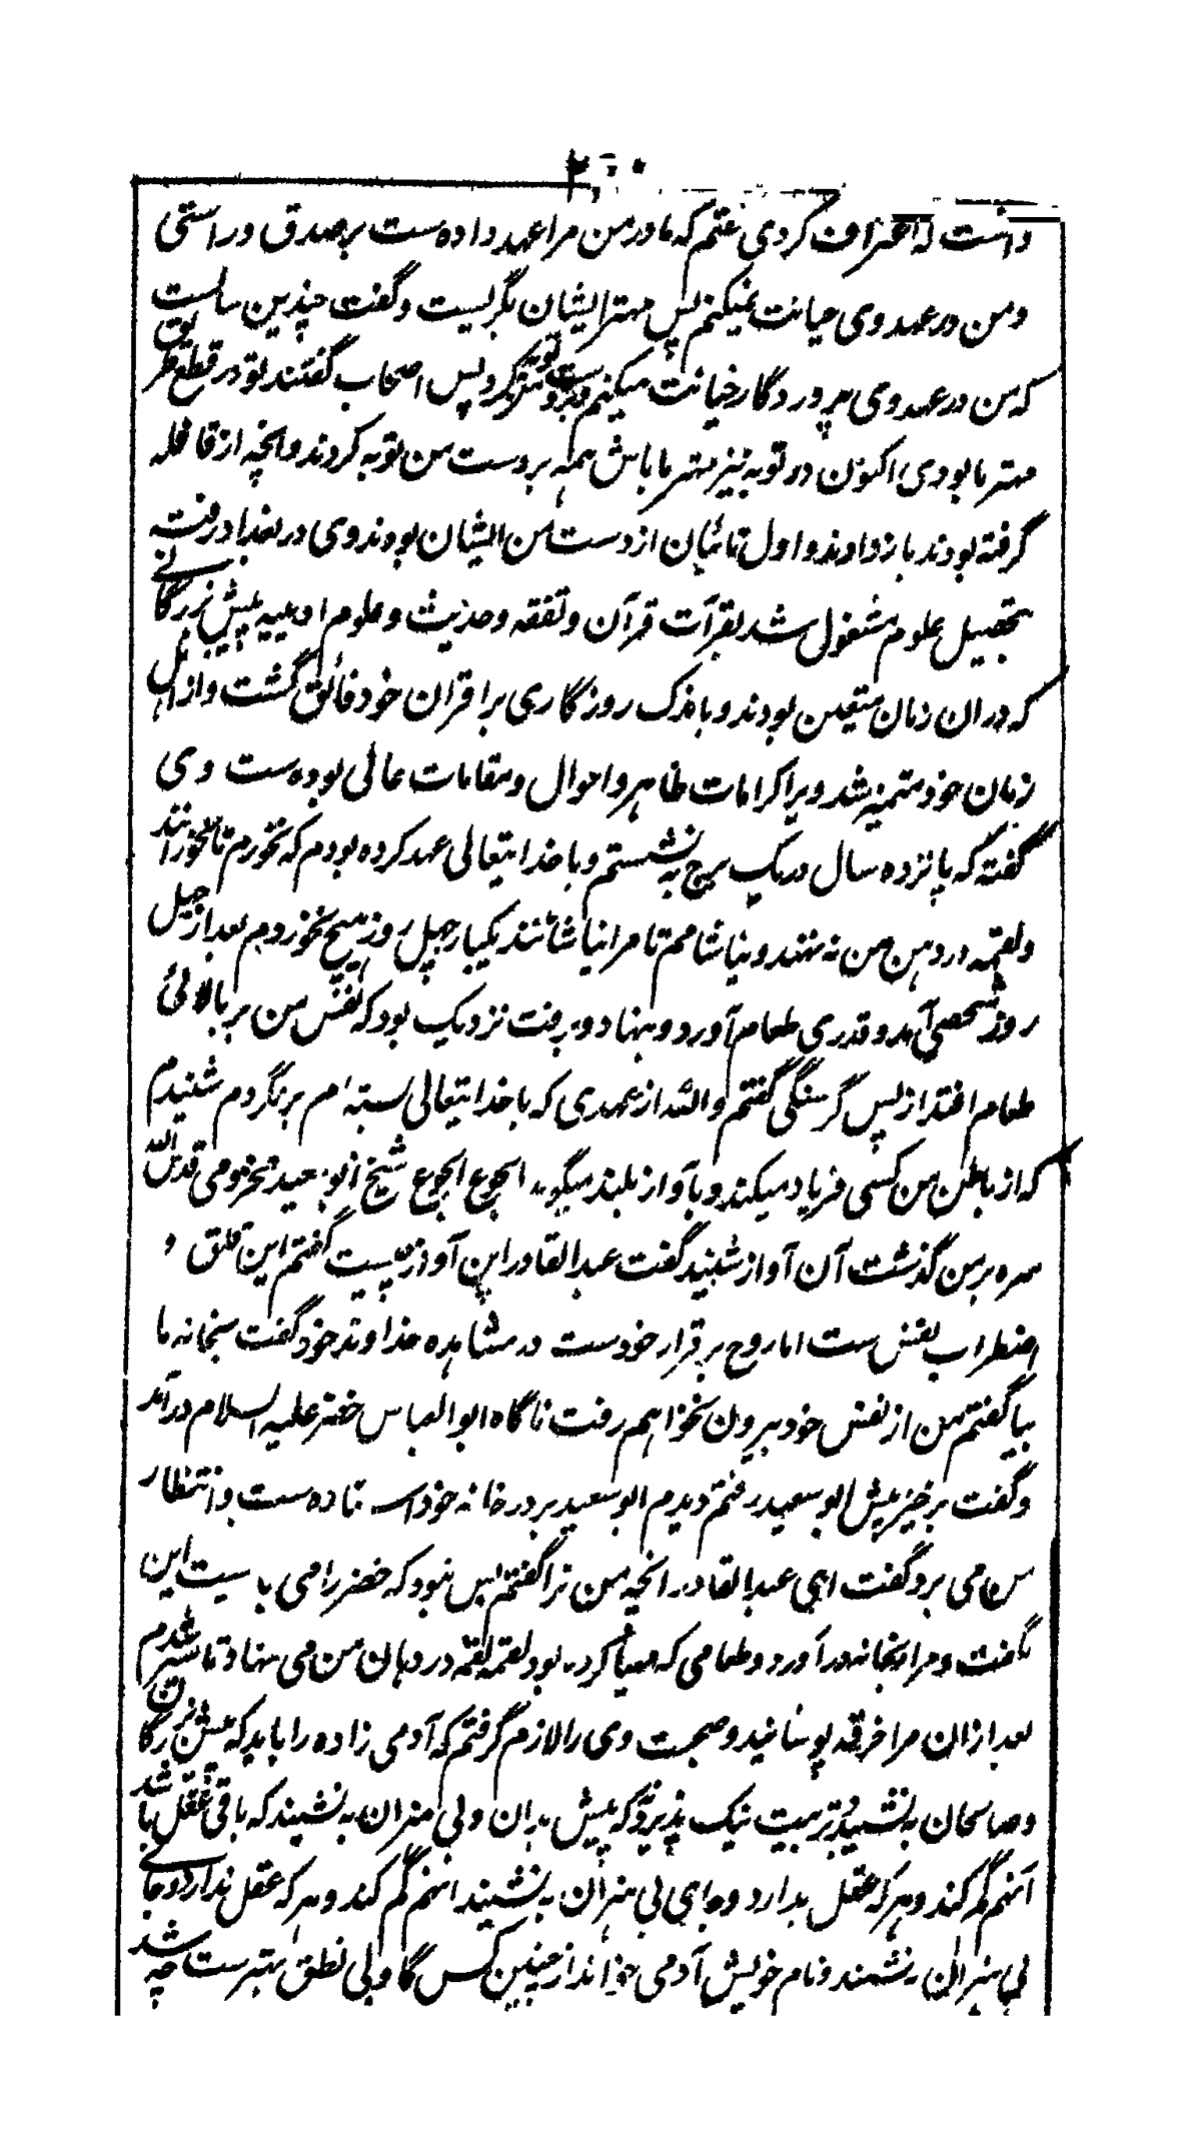 ۲۰۰
دانست که اعتراف کردی گفتم که مادر من مرا عهد داده ست بر صدق و راستی
و من در عهد وی خیانت نمیکنم پس مهتر ایشان بگریست و گفت چندین سالست
که من در عهد وی پروردگار خیانت میکنم و بردست من توبه کرد پس اصحاب گفتند تو در قطع طریق
مهتر ما بودی اکنون در توبه نیز مهتر ما باش همه بر دست من توبه کردند و آنچه از قافله
گرفته بودند باز دادند و اول تائبان از دست من ایشان بودند وی در بغداد رفت
بتحصیل علوم مشغول شد بقرآت قرآن و تفقه و حدیث و علوم ادبییه پیش بزرگانی
که دران زمان متعین بودند و باندک روزگاری بر اقران خود فائق گشت و از اهل
زمان خود متمیز شد ویرا کرامات ظاهر و احوال و مقامات عالی بوده ست وی
گفته که پانزده سال در یک برج به نشستم و با خدایتعالی عهد کرده بودم که نخورم تا نخورانند
و لقمه در دهن من نه نهند و نیاشامم تا مرا نیاشانند یکبار چهل روز هیچ نخوردم بعد از چهل
روز شخصی آمد و قدری طعام آورد و بنهاد و برفت نزدیک بود که نفس من بر بالائی
طعام افتد از بس گرسنگی گفتم والله از عهدی که با خدایتعالی بسته ام برنگردم شنیدم
که از باطن من کسی فریاد میکند و بآواز بلند میگوید الجوع الجوع شیخ ابو سعید مخزومی قدس الله
سره بر من گذشت آن آواز شنید گفت عبد القادر این آواز چیست گفتم این قلق و
اضطراب نفس ست اما روح بر قرار خودست در مشاهده خداوند خود گفت بخانه ما
بیا گفتم من از نفس خود بیرون نخواهم رفت ناگاه ابو العباس خضر علیه السلام درآمد
و گفت برخیز پیش ابو سعید رفتم دیدم ابو سعید بر در خانه خود استاده ست و انتظار
من می برد گفت ای عبد القادر آنچه من ترا گفتم بس نبود که خضر را می بایست این
گفت و مرا بخانه درآورد و طعامی که مهیا کرده بود لقمه لقمه در دهان من می نهاد تا سیر شدم
بعد ازان مرا خرقه پوشانید و صحبت وی را لازم گرفتم که آدمی زاده را باید که پیش بزرگان
و صالحان به نشیند و تربیت نیک پذیرد و که پیش بدان و بی هنران به نشیند که باقی عقل باشد
آنهم گم کند و هر که عقل ندارد و جای بی هنران به نشیند آنهم گم کند و هر که عقل ندارد و جائی
بی هنران نشیند و نام خویش آدمی خواند از چنین کس گاو بی نطق بهترست چه شد